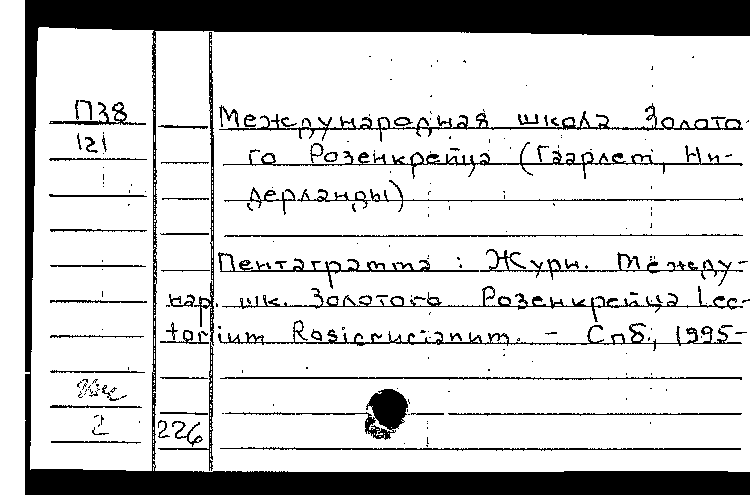 П38
121
Международная школа Золото-
го Розенкрейца (Гаарлем, Ни-
дерланды)
Пентаграмма : Журн. Между-
нар. шк. Золотого Розенкрейца Lec-
torium Rosicrucianum. - Спб., 1995-
2
226